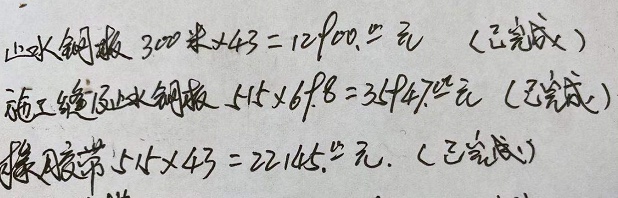 止水钢板 300米×43=12900.00元 (已完成)
施工缝后止水钢板 515×69.8=35947.00元 (已完成)
橡胶带 515×43=22145.00元. (已完成)